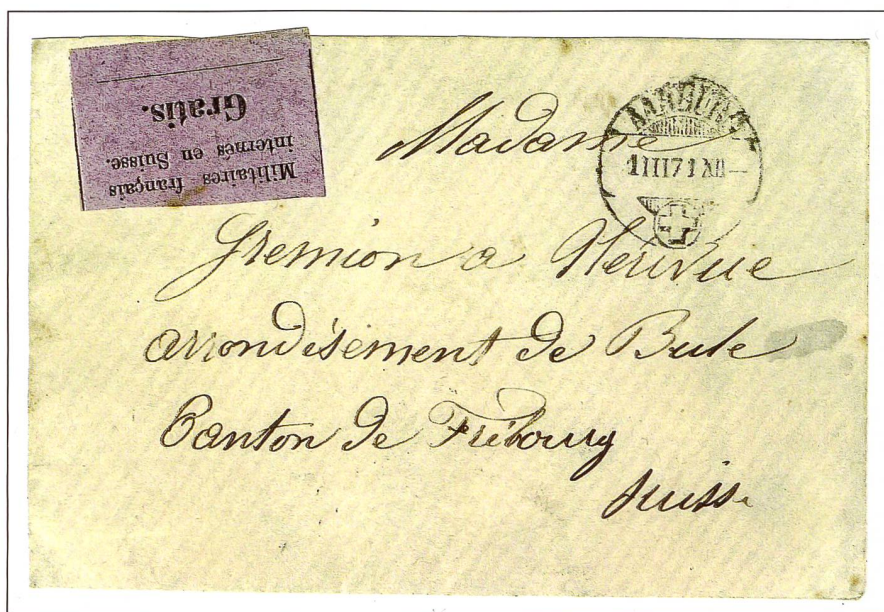 Militaires français
internés en Suisse.
Gratis.
AARBURG
1 III 71 XII
Madame
Gremion a Nerivue
arrondisement de Bule
Canton de Fribourg
Suisse